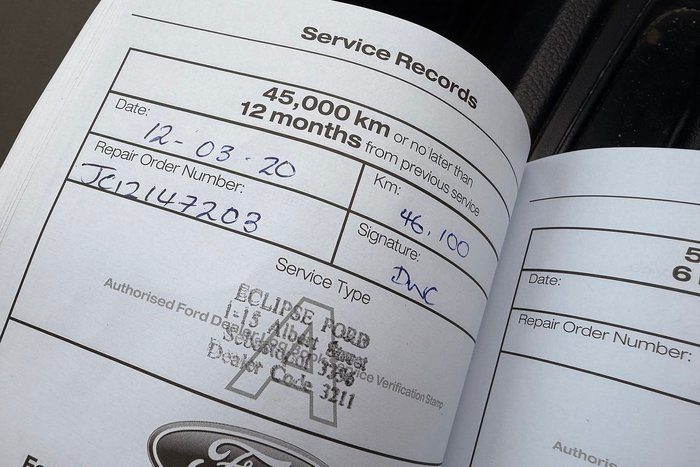 Service Records
45,000 km or no later than
12 months from previous service
Date:
12-03-20
Km:
46,100
Repair Order Number:
JC12147203
Signature:
DWC
Service Type
A
Authorised Ford Dealer Log Book Service Verification Stamp
ECLIPSE FORD
1-15 Albert Street
3356
Dealer Code 3211
Ford
5
6
Date:
Repair Order Number:
Authoris